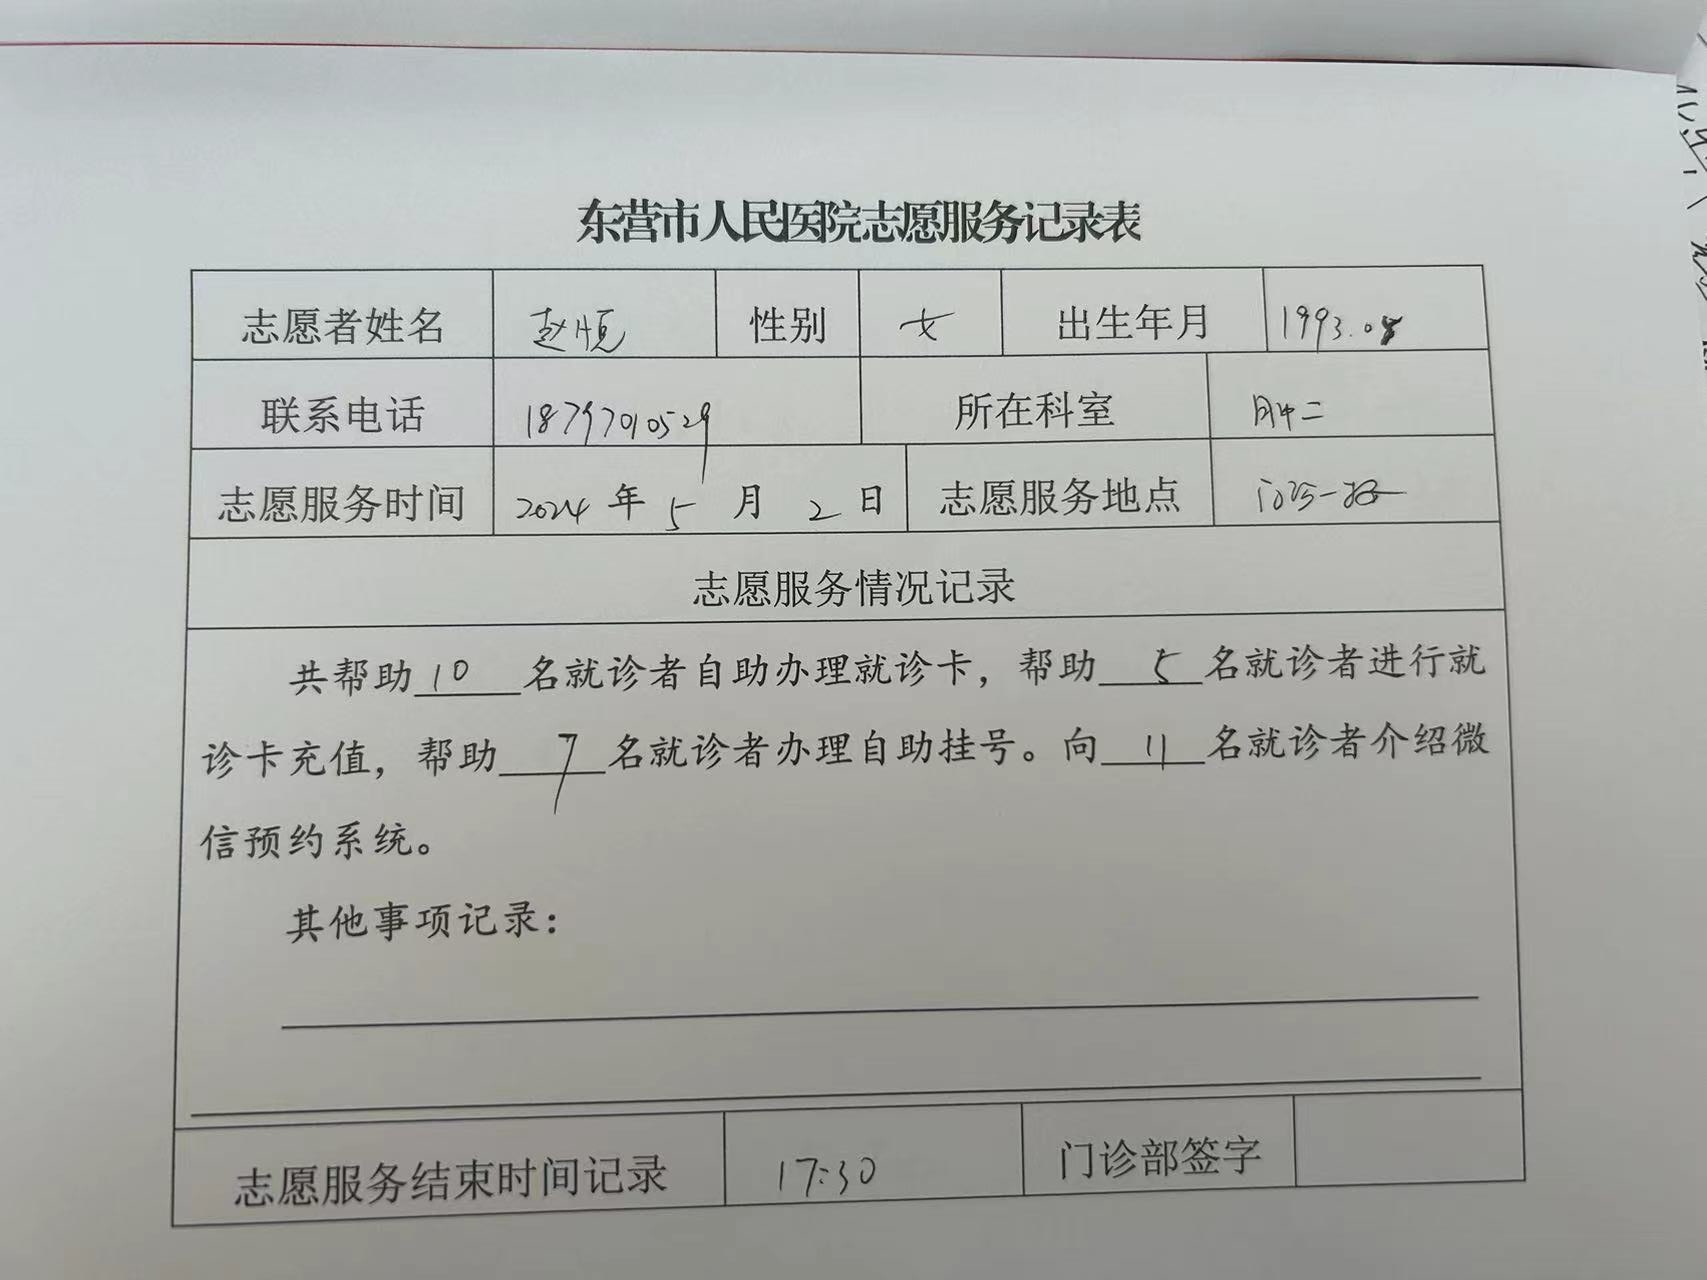 东营市人民医院志愿服务记录表
志愿者姓名 赵恒 性别 女 出生年月 1993.08
联系电话 18797010529 所在科室 肿二
志愿服务时间 2024年 5 月 2 日 志愿服务地点 门诊一楼
志愿服务情况记录
共帮助 10 名就诊者自助办理就诊卡，帮助 5 名就诊者进行就
诊卡充值，帮助 7 名就诊者办理自助挂号。向 11 名就诊者介绍微
信预约系统。
其他事项记录：
志愿服务结束时间记录 17:30 门诊部签字